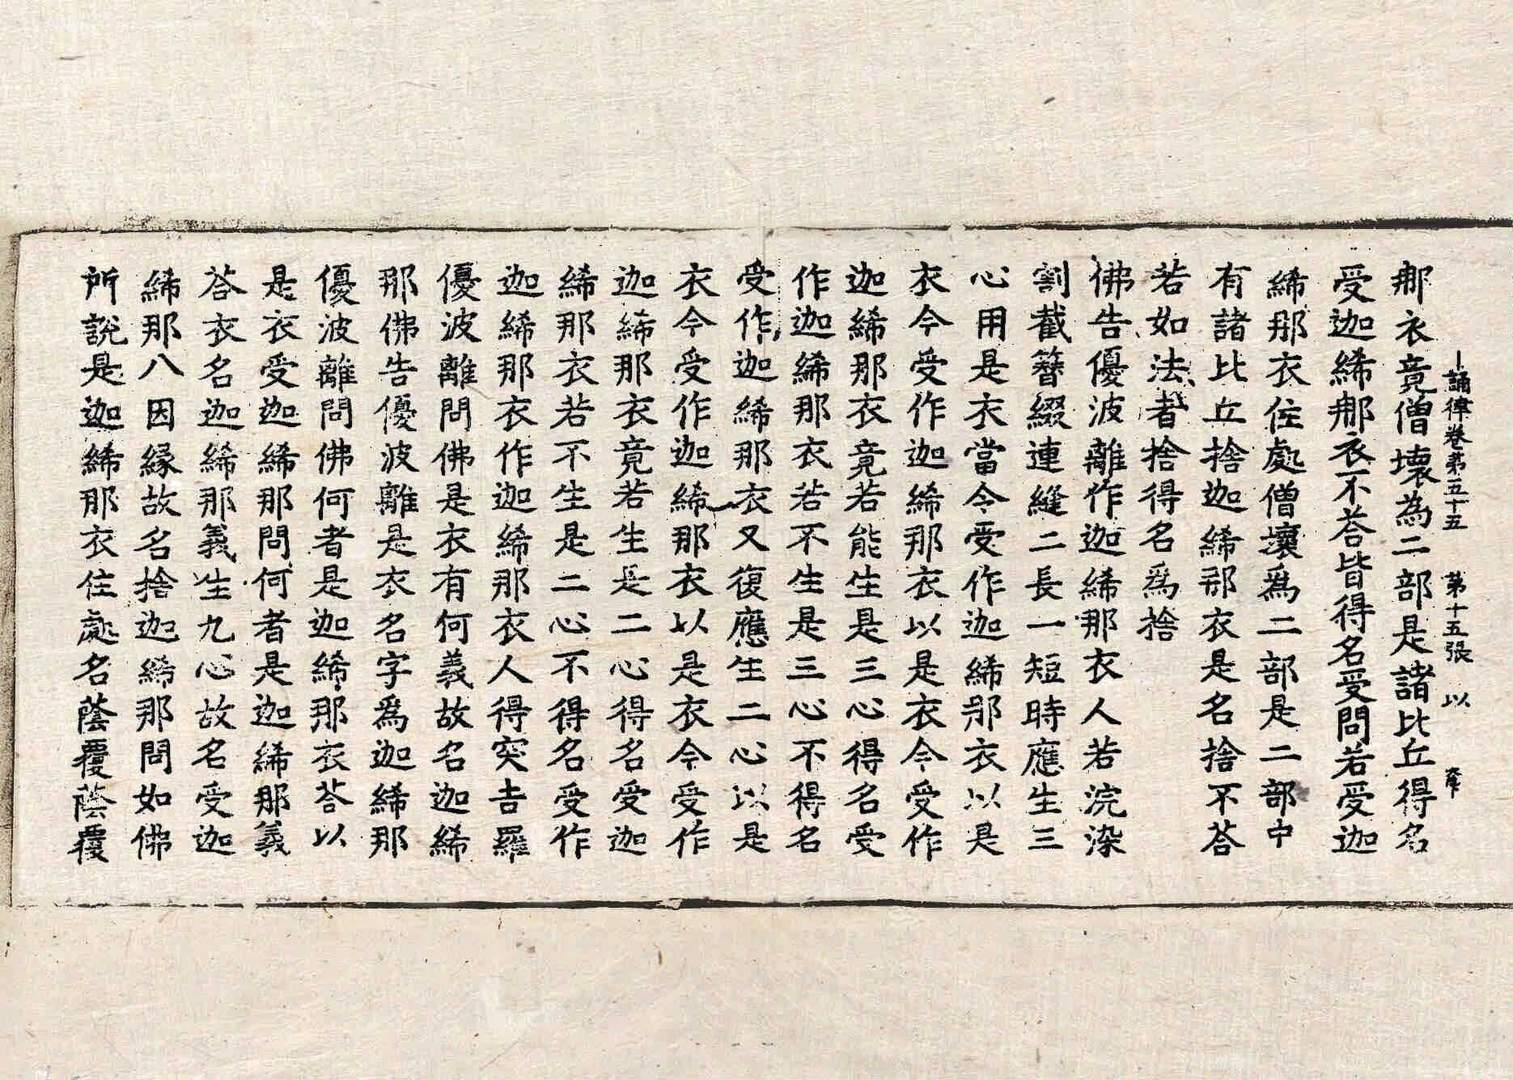 十誦律卷第五十五 第十五張 以
那衣竟僧壞為二部是諸比丘得名
受迦絺那衣不荅皆得名受問若受迦
絺那衣住處僧壞爲二部是二部中
有諸比丘捨迦絺那衣是名捨不荅
若如法者捨得名爲捨
佛告優波離作迦絺那衣人若浣染
割截簪綴連縫二長一短時應生三
心用是衣當令受作迦絺那衣以是
衣今受作迦絺那衣以是衣今受作
迦絺那衣竟若能生是三心得名受
作迦絺那衣若不生是三心不得名
受作迦絺那衣又復應生二心以是
衣今受作迦絺那衣以是衣今受作
迦絺那衣竟若生是二心得名受迦
絺那衣若不生是二心不得名受作
迦絺那衣作迦絺那衣人得突吉羅
優波離問佛是衣有何義故名迦絺
那佛告優波離是衣名字爲迦絺那
優波離問佛何者是迦絺那衣荅以
是衣受迦絺那問何者是迦絺那義
荅衣名迦絺那義生九心故名受迦
絺那八因緣故名捨迦絺那問如佛
所說是迦絺那衣住處名蔭覆蔭覆